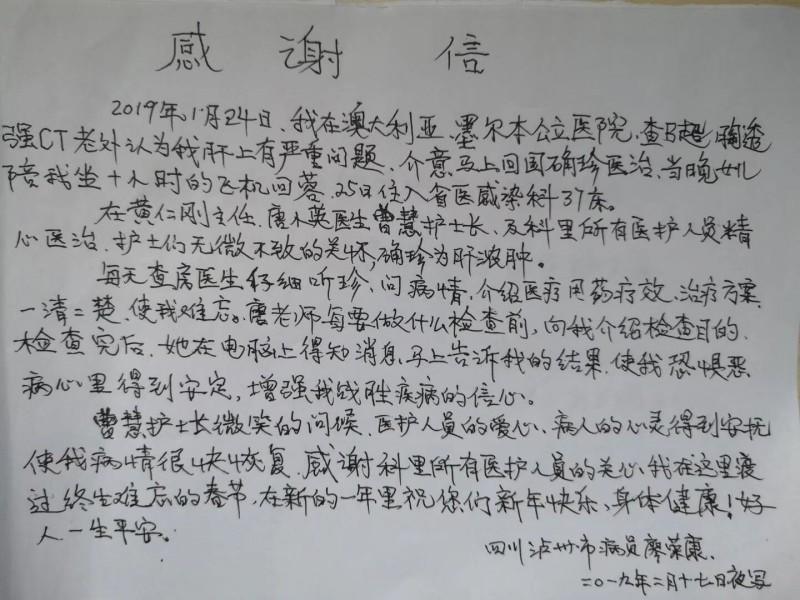 感谢信
2019年1月24日、我在澳大利亚、墨尔本公立医院,查B超、胸透
强CT老外认为我肝上有严重问题、介意马上回国确珍医治、当晚女儿
陪我坐十个小时的飞机回蓉、25日住入省医感染科37床。
在黄仁刚主任、唐小英医生曹慧护士长、及科里所有医护人员精
心医治、护士们无微不致的关怀,确珍为肝浓肿。
每天查房医生仔细听珍、问病情、介绍医疗用药疗效、治疗方案、
一清二楚、使我难忘。唐老师每要做什么检查前、向我介绍检查目的、
检查完后、她在电脑上得知消息、马上告诉我的结果、使我恐惧恶
病心里得到安定,增强我战胜疾病的信心。
曹慧护士长微笑的问候、医护人员的爱心、病人的心灵得到安抚
使我病情很快恢复、感谢科里所有医护人员的关心、我在这里渡
过终生难忘的春节、在新的一年里祝您们新年快乐、身体健康!好
人一生平安。
四川泸州市病员廖荣康、
二〇一九年二月十七日夜写